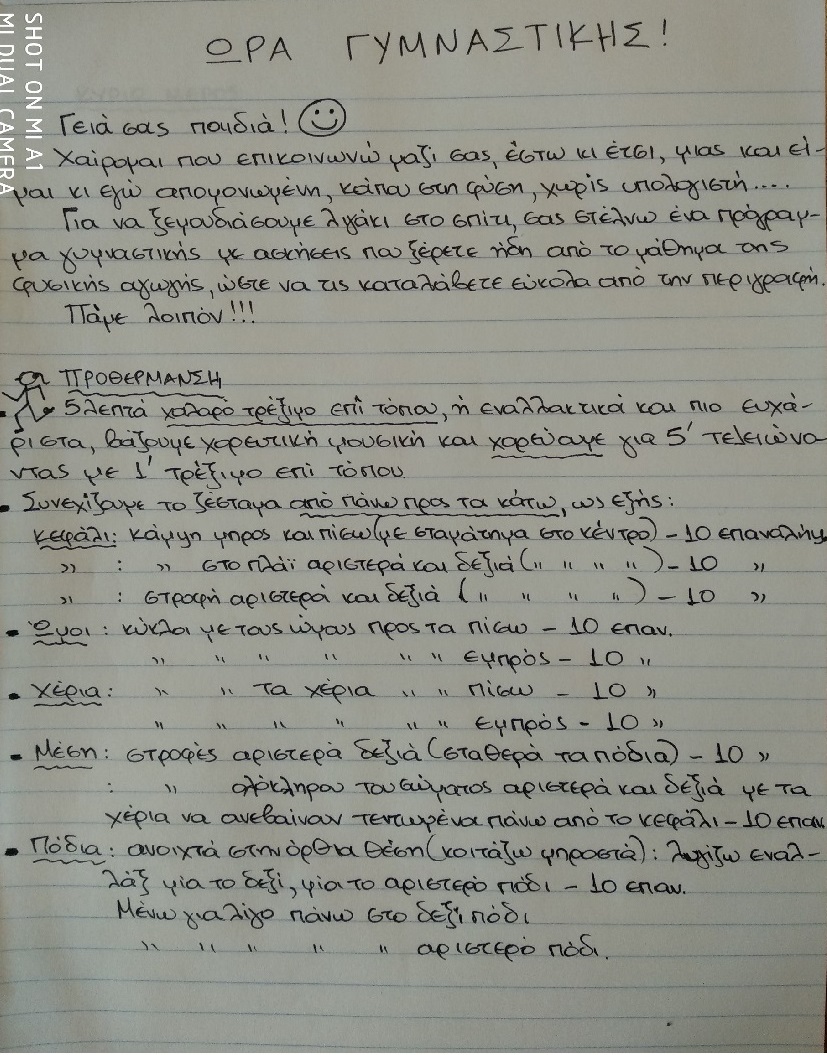 ΩΡΑ ΓΥΜΝΑΣΤΙΚΗΣ!
Γειά σας παιδιά!
Χαίρομαι που επικοινωνώ μαζί σας, έστω κι έτσι, μιας και εί-
μαι κι εγώ απομονωμένη, κάπου στη φύση, χωρίς υπολογιστή....
Για να ξεμουδιάσουμε λιγάκι στο σπίτι, σας στέλνω ένα πρόγραμ-
μα γυμναστικής με ασκήσεις που ξέρετε ήδη από το μάθημα της
φυσικής αγωγής, ώστε να τις καταλάβετε εύκολα από την περιγραφή.
Πάμε λοιπόν!!!
ΠΡΟΘΕΡΜΑΝΣΗ
• 5λεπτό χαλαρό τρέξιμο επί τόπου, ή εναλλακτικά και πιο ευχά-
ριστα, βάζουμε χορευτική μουσική και χορεύουμε για 5' τελειώνο-
ντας με 1' τρέξιμο επί τόπου.
• Συνεχίζουμε το ζέσταμα από πάνω προς τα κάτω, ως εξής:
Κεφάλι: κάμψη μπρος και πίσω (με σταμάτημα στο κέντρο) - 10 επαναλήψ
" : " στο πλάϊ αριστερά και δεξιά (" " " ") - 10 "
" : στροφή αριστερά και δεξιά (" " " ") - 10 "
• Ώμοι: κύκλοι με τους ώμους προς τα πίσω - 10 επαν.
" " " " " " εμπρός - 10 "
• Χέρια: " " τα χέρια " " πίσω - 10 "
" " " " " " εμπρός - 10 "
• Μέση: στροφές αριστερά δεξιά (σταθερά τα πόδια) - 10 "
: " ολόκληρου του σώματος αριστερά και δεξιά με τα
χέρια να ανεβαίνουν τεντωμένα πάνω από το κεφάλι - 10 επαν
• Πόδια: ανοιχτά στην όρθια θέση (κοιτάζω μπροστά): λυγίζω εναλ-
λάξ μία το δεξί, μία το αριστερό πόδι - 10 επαν.
Μένω για λίγο πάνω στο δεξί πόδι
" " " " " αριστερό πόδι.
SHOT ON MI A1
MI DUAL CAMERA